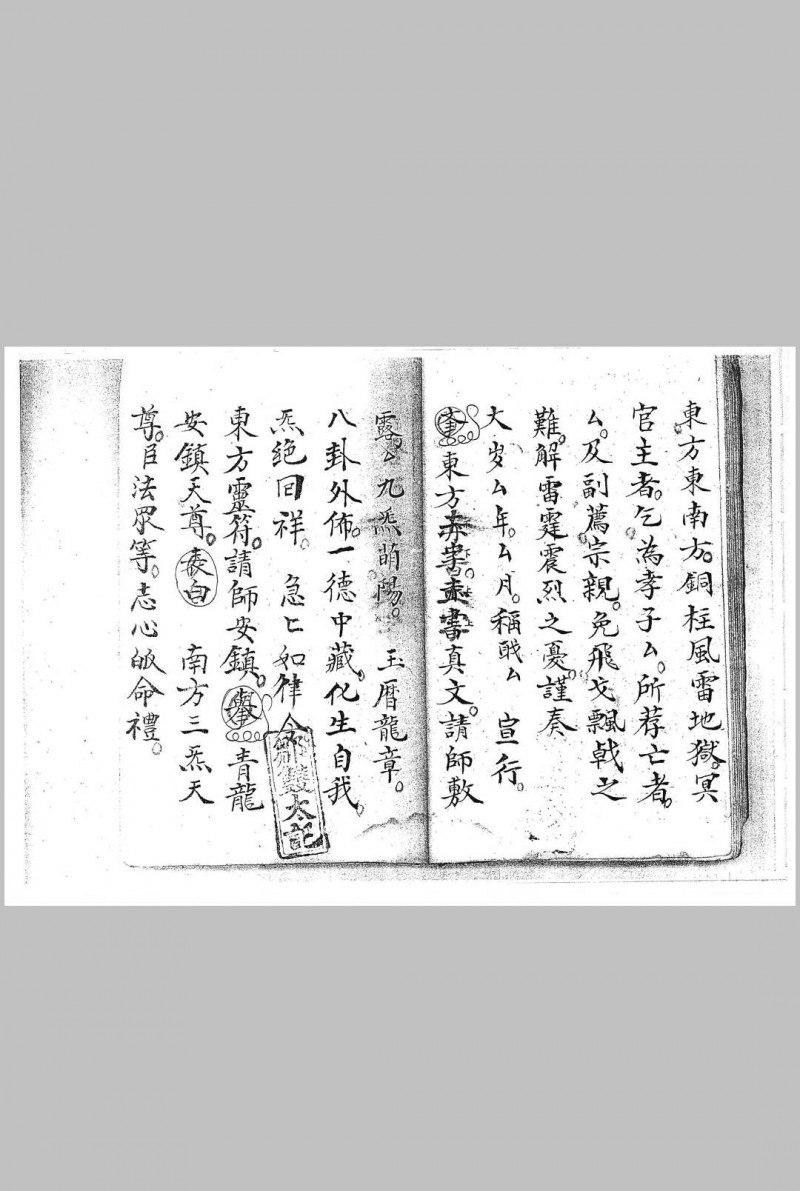 東方東南方。銅柱風雷地獄。冥
官主者。乞為孝子ム。所荐亡者。
ム。及副薦宗親。免飛戈飄戟之
難。解雷霆震烈之憂。謹奏
大岁ム年。ム月。稱戢ム 宣行。
東方赤書真文。請師敷
露。ム九炁萌陽。 玉曆龍章。
八卦外佈。一德中藏。化生自我。
炁絕回祥。 急匕如律令
東方靈符。請師安鎮。舉青龍
安鎮天尊。表白 南方三炁天
尊。臣法眾等。志心皈命禮。
太記